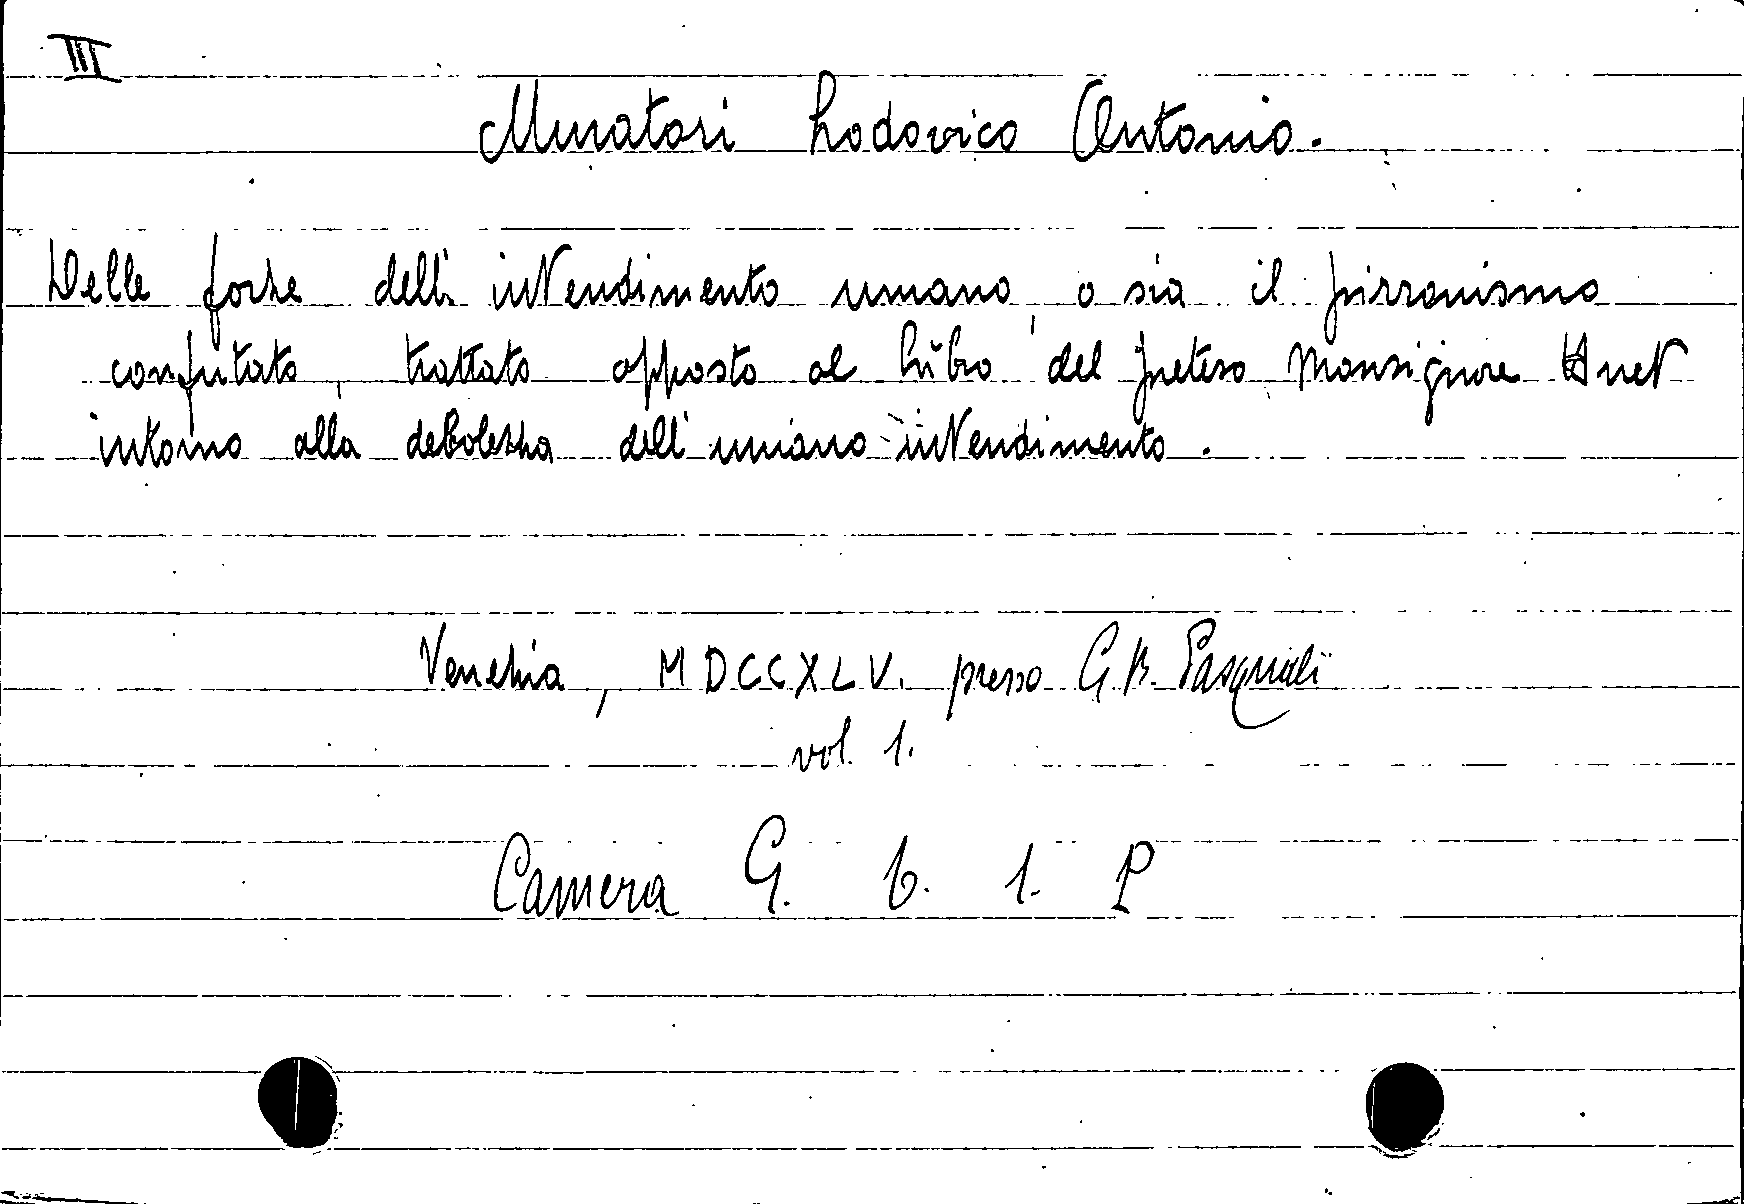 III
Muratori Lodovico Antonio.
Delle forze dell'intendimento umano, o sia il pirronismo
confutato, trattato opposto al libro del preteso Monsignore Huet
intorno alla debolezza dell'umano intendimento.
Venezia, MDCCXLV. presso G. B. Pasquali
vol. 1.
Camera G. b. 1. P